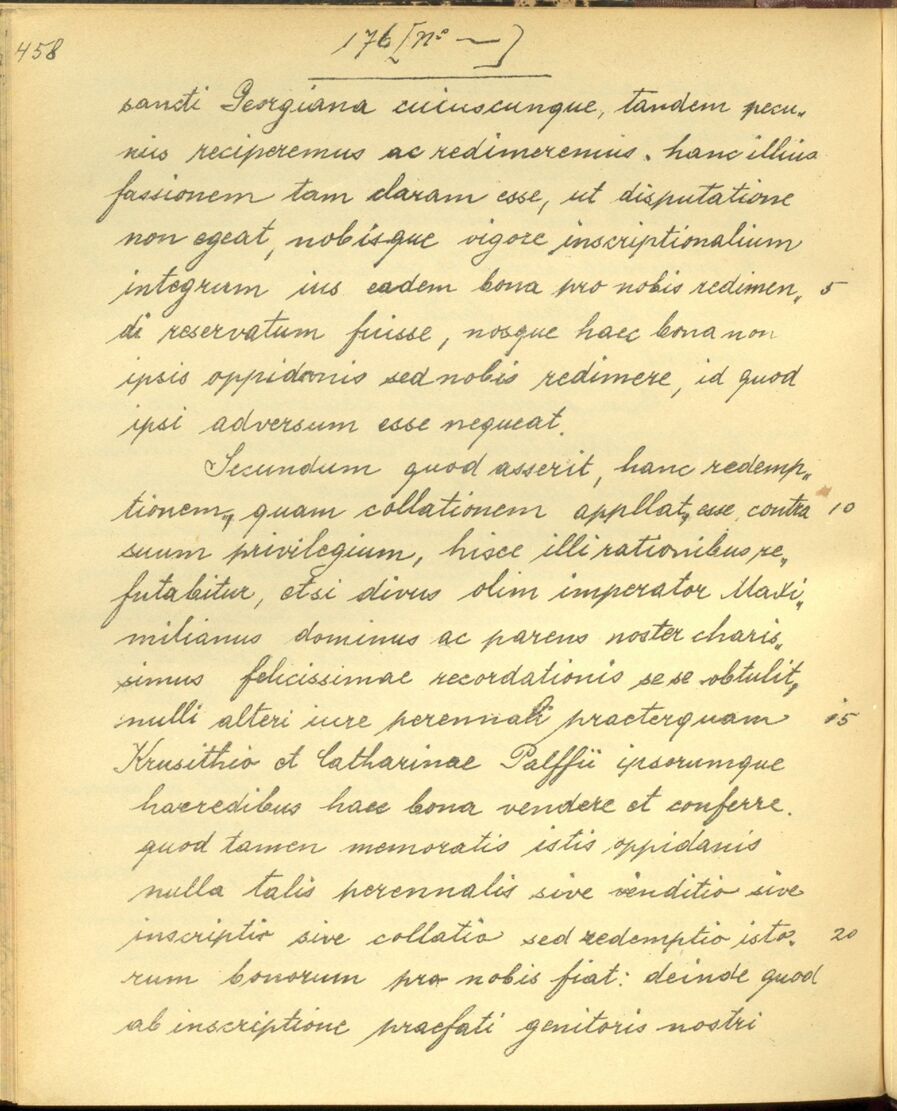 458
176 [Nº —]
sancti Georgiana cuiuscunque, tandem pecu„
niis reciperemus ac redimeremus. hanc illius
fassionem tam claram esse, ut disputatione
non egeat, nobisque vigore inscriptionalium
integrum ius eadem bona pro nobis redimen„ 5
di reservatum fuisse, nosque haec bona non
ipsis oppidanis sed nobis redimere, id quod
ipsi adversum esse nequeat.
Secundum quod asserit, hanc redemp„
tionem, quam collationem appllat, esse contra 10
suum privilegium, hisce illi rationibus re„
futabitur, etsi divus olim imperator Maxi„
milianus dominus ac parens noster charis„
simus felicissimae recordationis sese obtulit,
nulli alteri iure perennali praeterquam 15
Krusithio et Catharinae Palffii ipsorumque
haeredibus haec bona vendere et conferre.
quod tamen memoratis istis oppidanis
nulla talis perennalis sive venditio sive
inscriptio sive collatio sed redemptio isto„ 20
rum bonorum pro nobis fiat: deinde quod
ab inscriptione praefati genitoris nostri